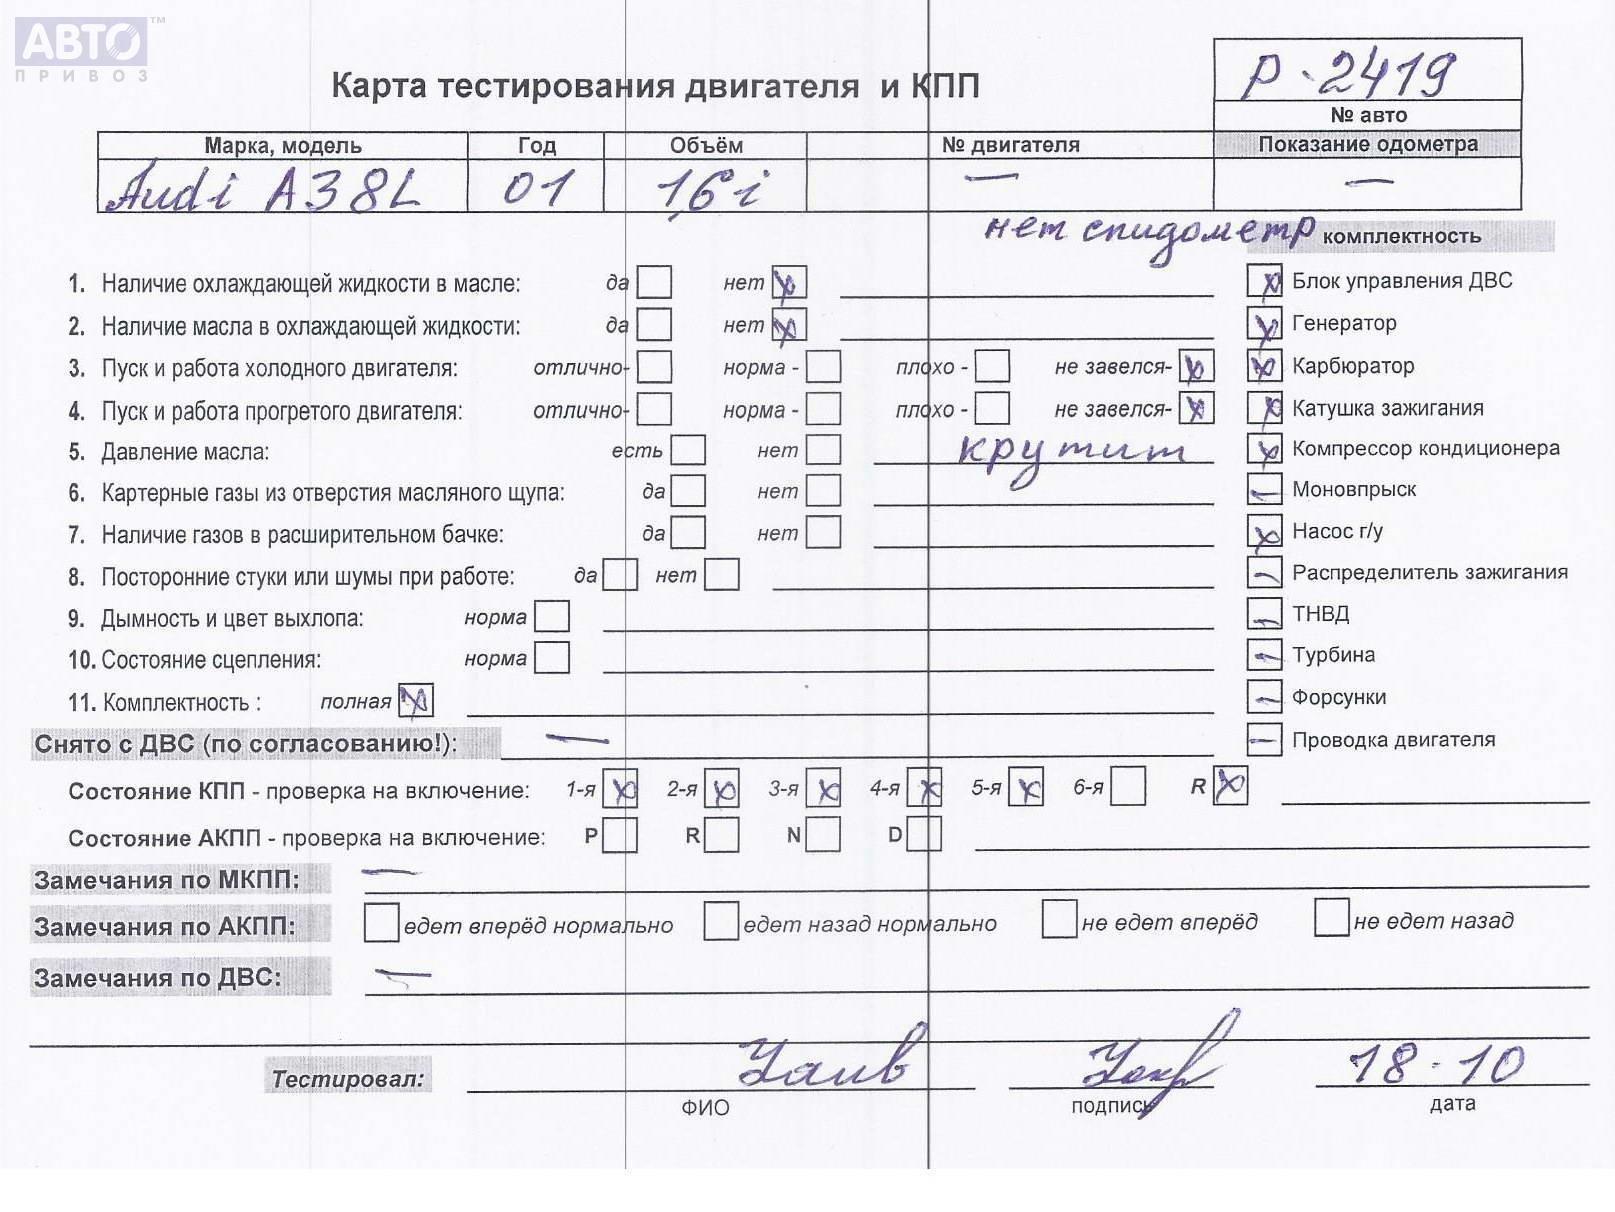 АВТО™
ПРИВОЗ
Карта тестирования двигателя и КПП
Р-2419
№ авто
Марка, модель Год Объём № двигателя Показание одометра
Audi A3 8L 01 1,6 i — —
нет спидометр комплектность
1. Наличие охлаждающей жидкости в масле: да нет x
2. Наличие масла в охлаждающей жидкости: да нет x
3. Пуск и работа холодного двигателя: отлично- норма - плохо - не завелся- x
4. Пуск и работа прогретого двигателя: отлично- норма - плохо - не завелся- x
5. Давление масла: есть нет крутит
6. Картерные газы из отверстия масляного щупа: да нет
7. Наличие газов в расширительном бачке: да нет
8. Посторонние стуки или шумы при работе: да нет
9. Дымность и цвет выхлопа: норма
10. Состояние сцепления: норма
11. Комплектность : полная x
x Блок управления ДВС
x Генератор
x Карбюратор
x Катушка зажигания
x Компрессор кондиционера
— Моновпрыск
x Насос г/у
— Распределитель зажигания
— ТНВД
— Турбина
— Форсунки
— Проводка двигателя
Снято с ДВС (по согласованию!): —
Состояние КПП - проверка на включение: 1-я x 2-я x 3-я x 4-я x 5-я x 6-я R x
Состояние АКПП - проверка на включение: P R N D
Замечания по МКПП: —
Замечания по АКПП: едет вперёд нормально едет назад нормально не едет вперёд не едет назад
Замечания по ДВС: —
Тестировал: 18-10
ФИО подпись дата